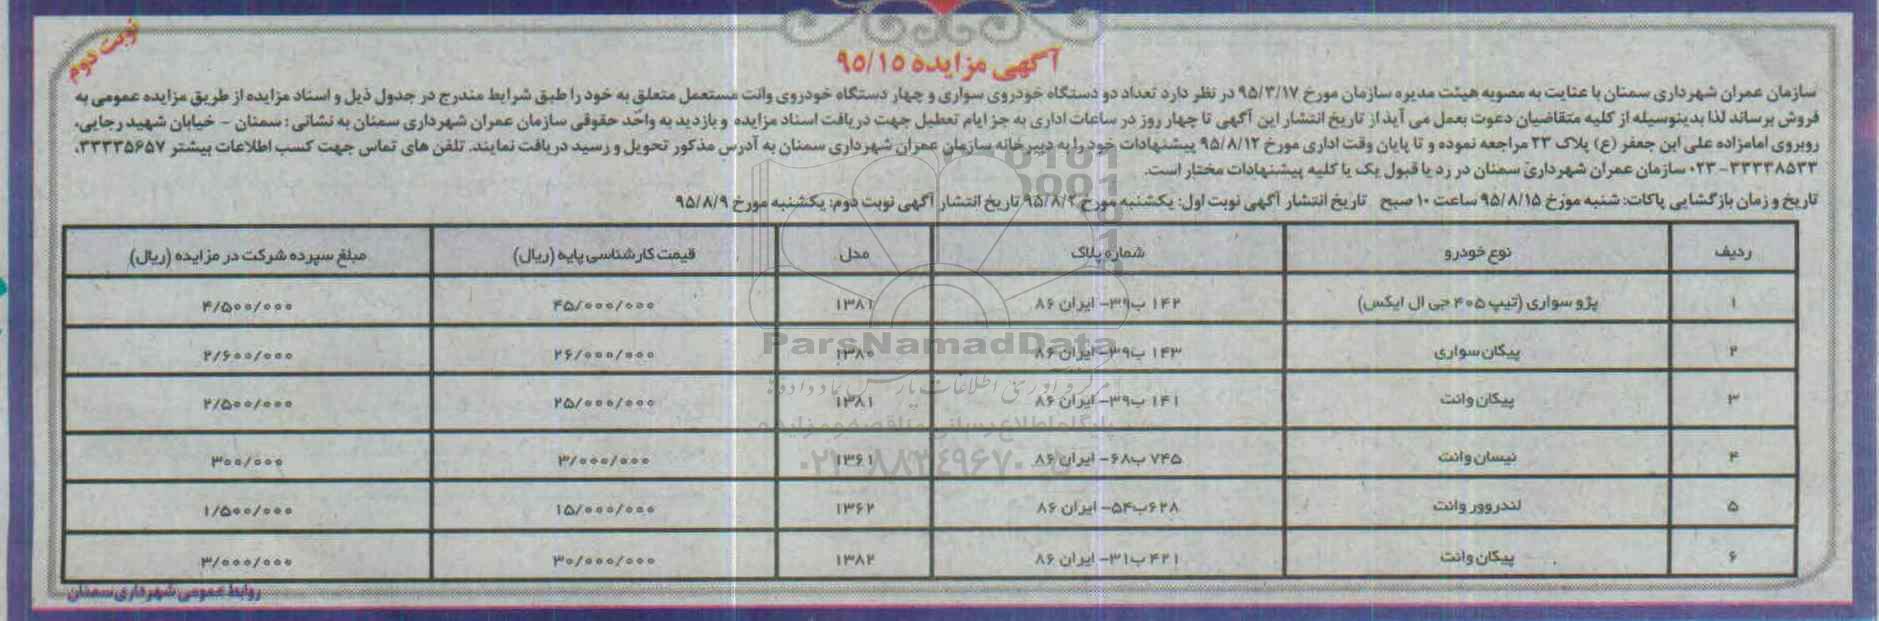 نوبت دوم
آگهی مزایده ۹۵/۱۵
سازمان عمران شهرداری سمنان با عنایت به مصوبه هیئت مدیره سازمان مورخ ۹۵/۳/۱۷ در نظر دارد تعداد دو دستگاه خودروی سواری و چهار دستگاه خودروی وانت مستعمل متعلق به خود را طبق شرایط مندرج در جدول ذیل و اسناد مزایده از طریق مزایده عمومی به
فروش برساند لذا بدینوسیله از کلیه متقاضیان دعوت بعمل می آید از تاریخ انتشار این آگهی تا چهار روز در ساعات اداری به جز ایام تعطیل جهت دریافت اسناد مزایده و بازدید به واحد حقوقی سازمان عمران شهرداری سمنان به نشانی : سمنان - خیابان شهید رجایی،
روبروی امامزاده علی ابن جعفر (ع) پلاک ۲۳ مراجعه نموده و تا پایان وقت اداری مورخ ۹۵/۸/۱۲ پیشنهادات خود را به دبیرخانه سازمان عمران شهرداری سمنان به آدرس مذکور تحویل و رسید دریافت نمایند. تلفن های تماس جهت کسب اطلاعات بیشتر ۳۳۳۳۵۶۵۷،
۳۳۳۳۸۵۳۳-۰۲۳ سازمان عمران شهرداری سمنان در رد یا قبول یک یا کلیه پیشنهادات مختار است.
تاریخ و زمان بازگشایی پاکات: شنبه مورخ ۹۵/۸/۱۵ ساعت ۱۰ صبح تاریخ انتشار آگهی نوبت اول: یکشنبه مورخ ۹۵/۸/۲ تاریخ انتشار آگهی نوبت دوم: یکشنبه مورخ ۹۵/۸/۹
ردیف نوع خودرو شماره پلاک مدل قیمت کارشناسی پایه (ریال) مبلغ سپرده شرکت در مزایده (ریال)
۱ پژو سواری (تیپ ۴۰۵ جی ال ایکس) ۱۴۲ ب۳۹- ایران ۸۶ ۱۳۸۱ ۴۵/۰۰۰/۰۰۰ ۴/۵۰۰/۰۰۰
۲ پیکان سواری ۱۴۳ ب۳۹- ایران ۸۶ ۱۳۸۰ ۲۶/۰۰۰/۰۰۰ ۲/۶۰۰/۰۰۰
۳ پیکان وانت ۱۴۱ ب۳۹- ایران ۸۶ ۱۳۸۱ ۲۵/۰۰۰/۰۰۰ ۲/۵۰۰/۰۰۰
۴ نیسان وانت ۷۴۵ ب۶۸- ایران ۸۶ ۱۳۶۱ ۳/۰۰۰/۰۰۰ ۳۰۰/۰۰۰
۵ لندروور وانت ۶۲۸ب۵۴- ایران ۸۶ ۱۳۶۲ ۱۵/۰۰۰/۰۰۰ ۱/۵۰۰/۰۰۰
۶ پیکان وانت ۴۲۱ ب۳۱- ایران ۸۶ ۱۳۸۲ ۳۰/۰۰۰/۰۰۰ ۳/۰۰۰/۰۰۰
روابط عمومی شهرداری سمنان
ParsNamadData
مرکز فرآوری اطلاعات پارس نماد داده ها
پایگاه اطلاع رسانی مناقصه و مزایده